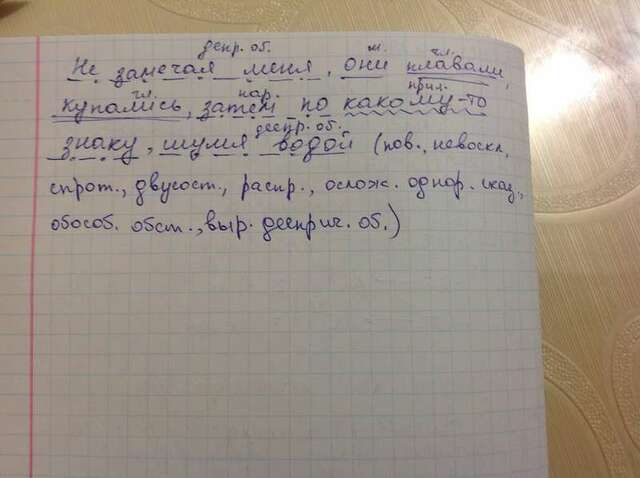 деепр. об. м. гл.
Не замечая меня, они плавали,
гл. нар. прил.
купались, затем по какому-то
деепр. об.
знаку, шумя водой (пов., невоскл.,
спрот., двусост., распр., ослож. однор. сказ.,
обособ. обст., выр. дееприч. об.)